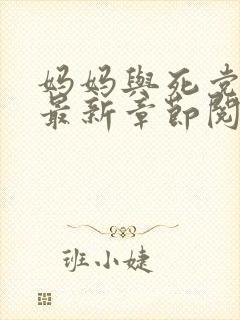 妈妈與死党
最新章節閱
班小婕